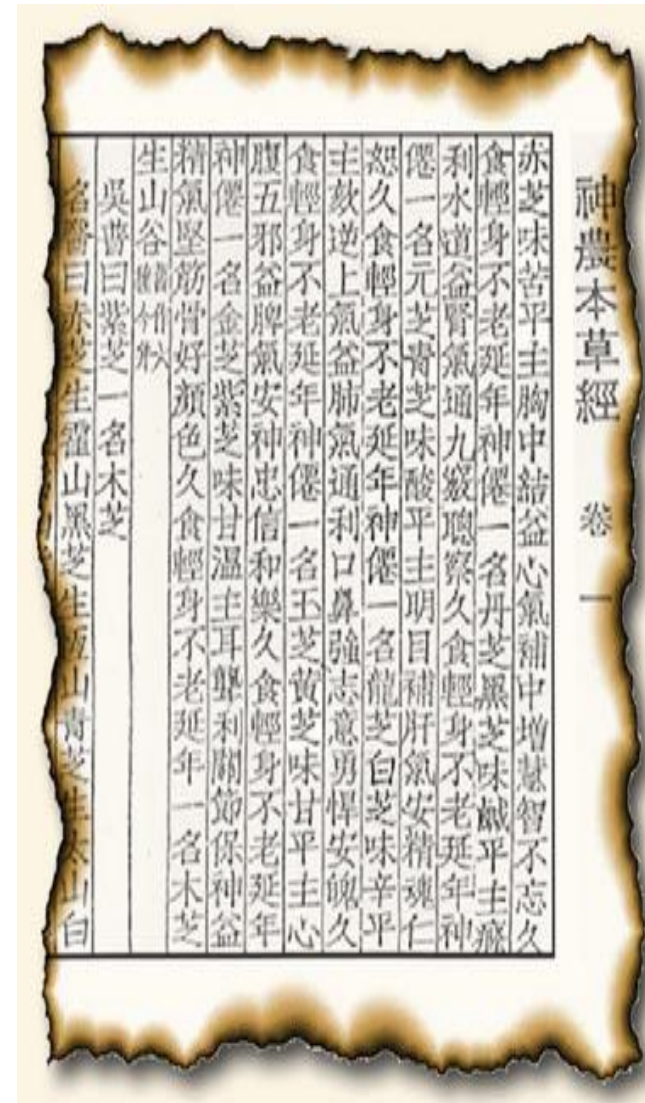 神農本草經 卷一
赤芝味苦平主胸中結益心氣補中增慧智不忘久
食輕身不老延年神僊一名丹芝黑芝味鹹平主癃
利水道益腎氣通九竅聰察久食輕身不老延年神
僊一名元芝青芝味酸平主明目補肝氣安精魂仁
恕久食輕身不老延年神僊一名龍芝白芝味辛平
主欬逆上氣益肺氣通利口鼻強志意勇悍安魄久
食輕身不老延年神僊一名玉芝黃芝味甘平主心
腹五邪益脾氣安神忠信和樂久食輕身不老延年
神僊一名金芝紫芝味甘溫主耳聾利關節保神益
精氣堅筋骨好顏色久食輕身不老延年一名木芝
生山谷舊作六種今并
吳普曰紫芝一名木芝
名醫曰赤芝生霍山黑芝生恆山青芝生太山白